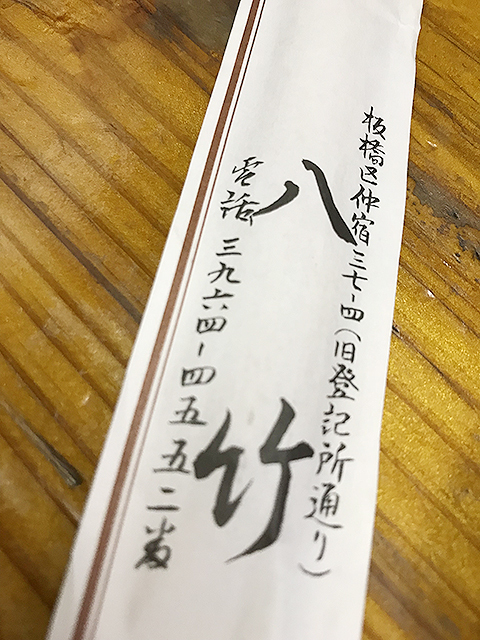 板橋区仲宿三七-四(旧登記所通り)
八竹
電話 三九六四-四五五二番